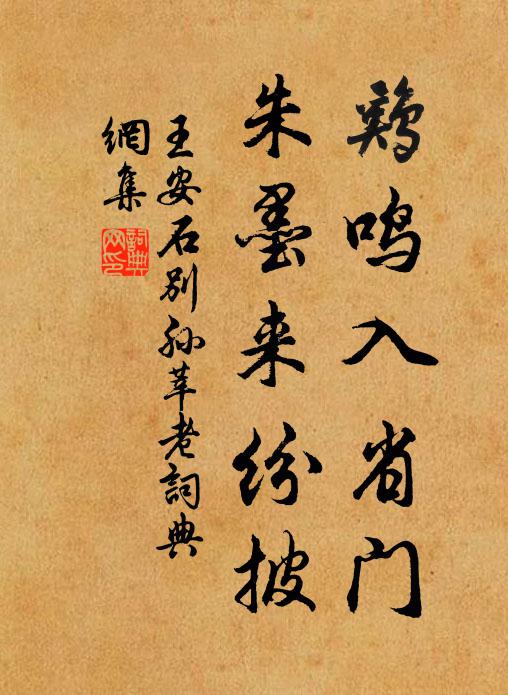 鷄鸣入省门
朱墨来纷披
王安石别孙莘老詞典
網集
詞典網印